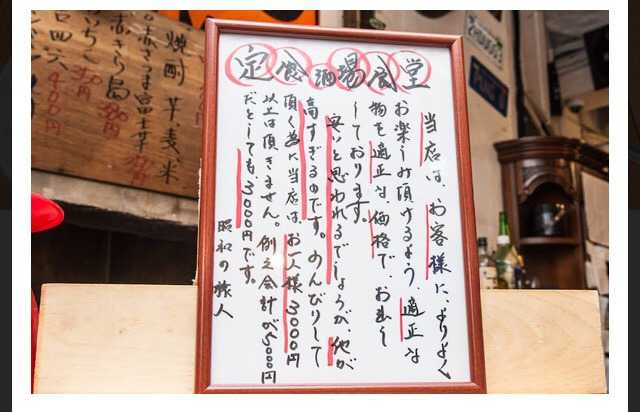 定食酒場食堂
当店は、お客様に、よりよく
お楽しみ頂けるよう、適正な
物を適正な価格で、お出し
しております。
安いと思われるでしょうが、他が
高すぎるのです。のんびりして
頂く為に当店は、お一人様3000円
以上は頂きません。例え会計が5000円
だとしても、3000円です。
昭和の旅人
焼酎 芋麦米